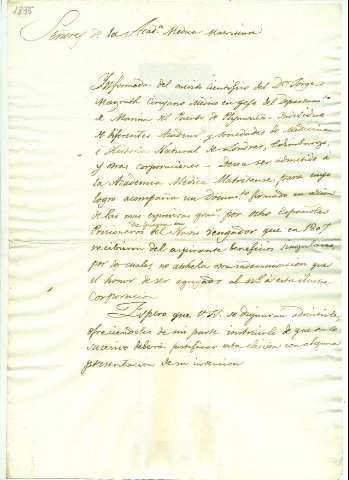 1835
Señores de la Acad.ª Medica Matritense
Informado del merito cientifico del Dor. Jorge
Magrath Cirujano Medico en gefe del Departam.to
de Marina del Puerto de Plymouth - Individuo
de diferentes Academ.s y sociedades de Medicina
i Historia Natural de Londres, Edimburgo,
y otras corporaciones - Desea ser admitido á
la Academia Medica Matritense, para cuyo
logro acompaña un Docum.to firmado en
de las mas espresivas por ocho Españoles
Prisioneros de guerra del Navio vengador que en 1807
recibieron del aspirante beneficios singulares
por lo cuales no anhela otra que
el honor de ser agregado al á esta ilustre
Corporacion.
Espero que V.SS. se dignaran admitirle,
ofreciendoles de mi parte instruirle de que en lo
sucesivo deberá justificar esta eleccion con alguna
presentacion de su